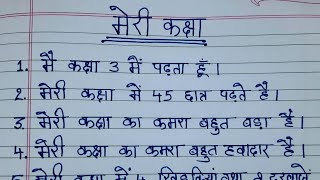 मेरी कक्षा
1. मै कक्षा 3 में पढ़ता हूँ।
2. मेरी कक्षा में 45 छात्र पढ़ते है।
3. मेरी कक्षा का कमरा बहुत बड़ा हैं।
4. मेरी कक्षा का कमरा बहुत हवादार है।
5. मेरी कक्षा में 4 खिड़कियां तथा 2 दरवाजें